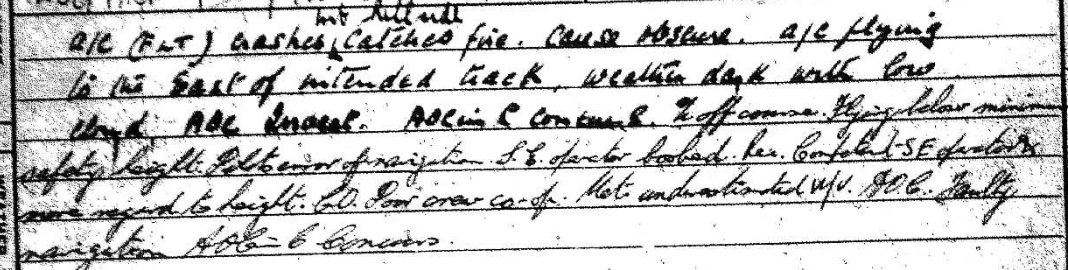 into hillside
a/c (FLT) crashes, catches fire. Cause obscure. a/c flying
to the East of intended track, weather dark with low
cloud. AOC. AOC in C concurs. off course. Flying below minimum
safety height. Pilots error of navigation. S.E. operator. Rec. -SE operators
more regard to height. CO. Poor crew co-op. Met. underestimated W/V. AOC. Faulty
navigation AOC-C Concurs.